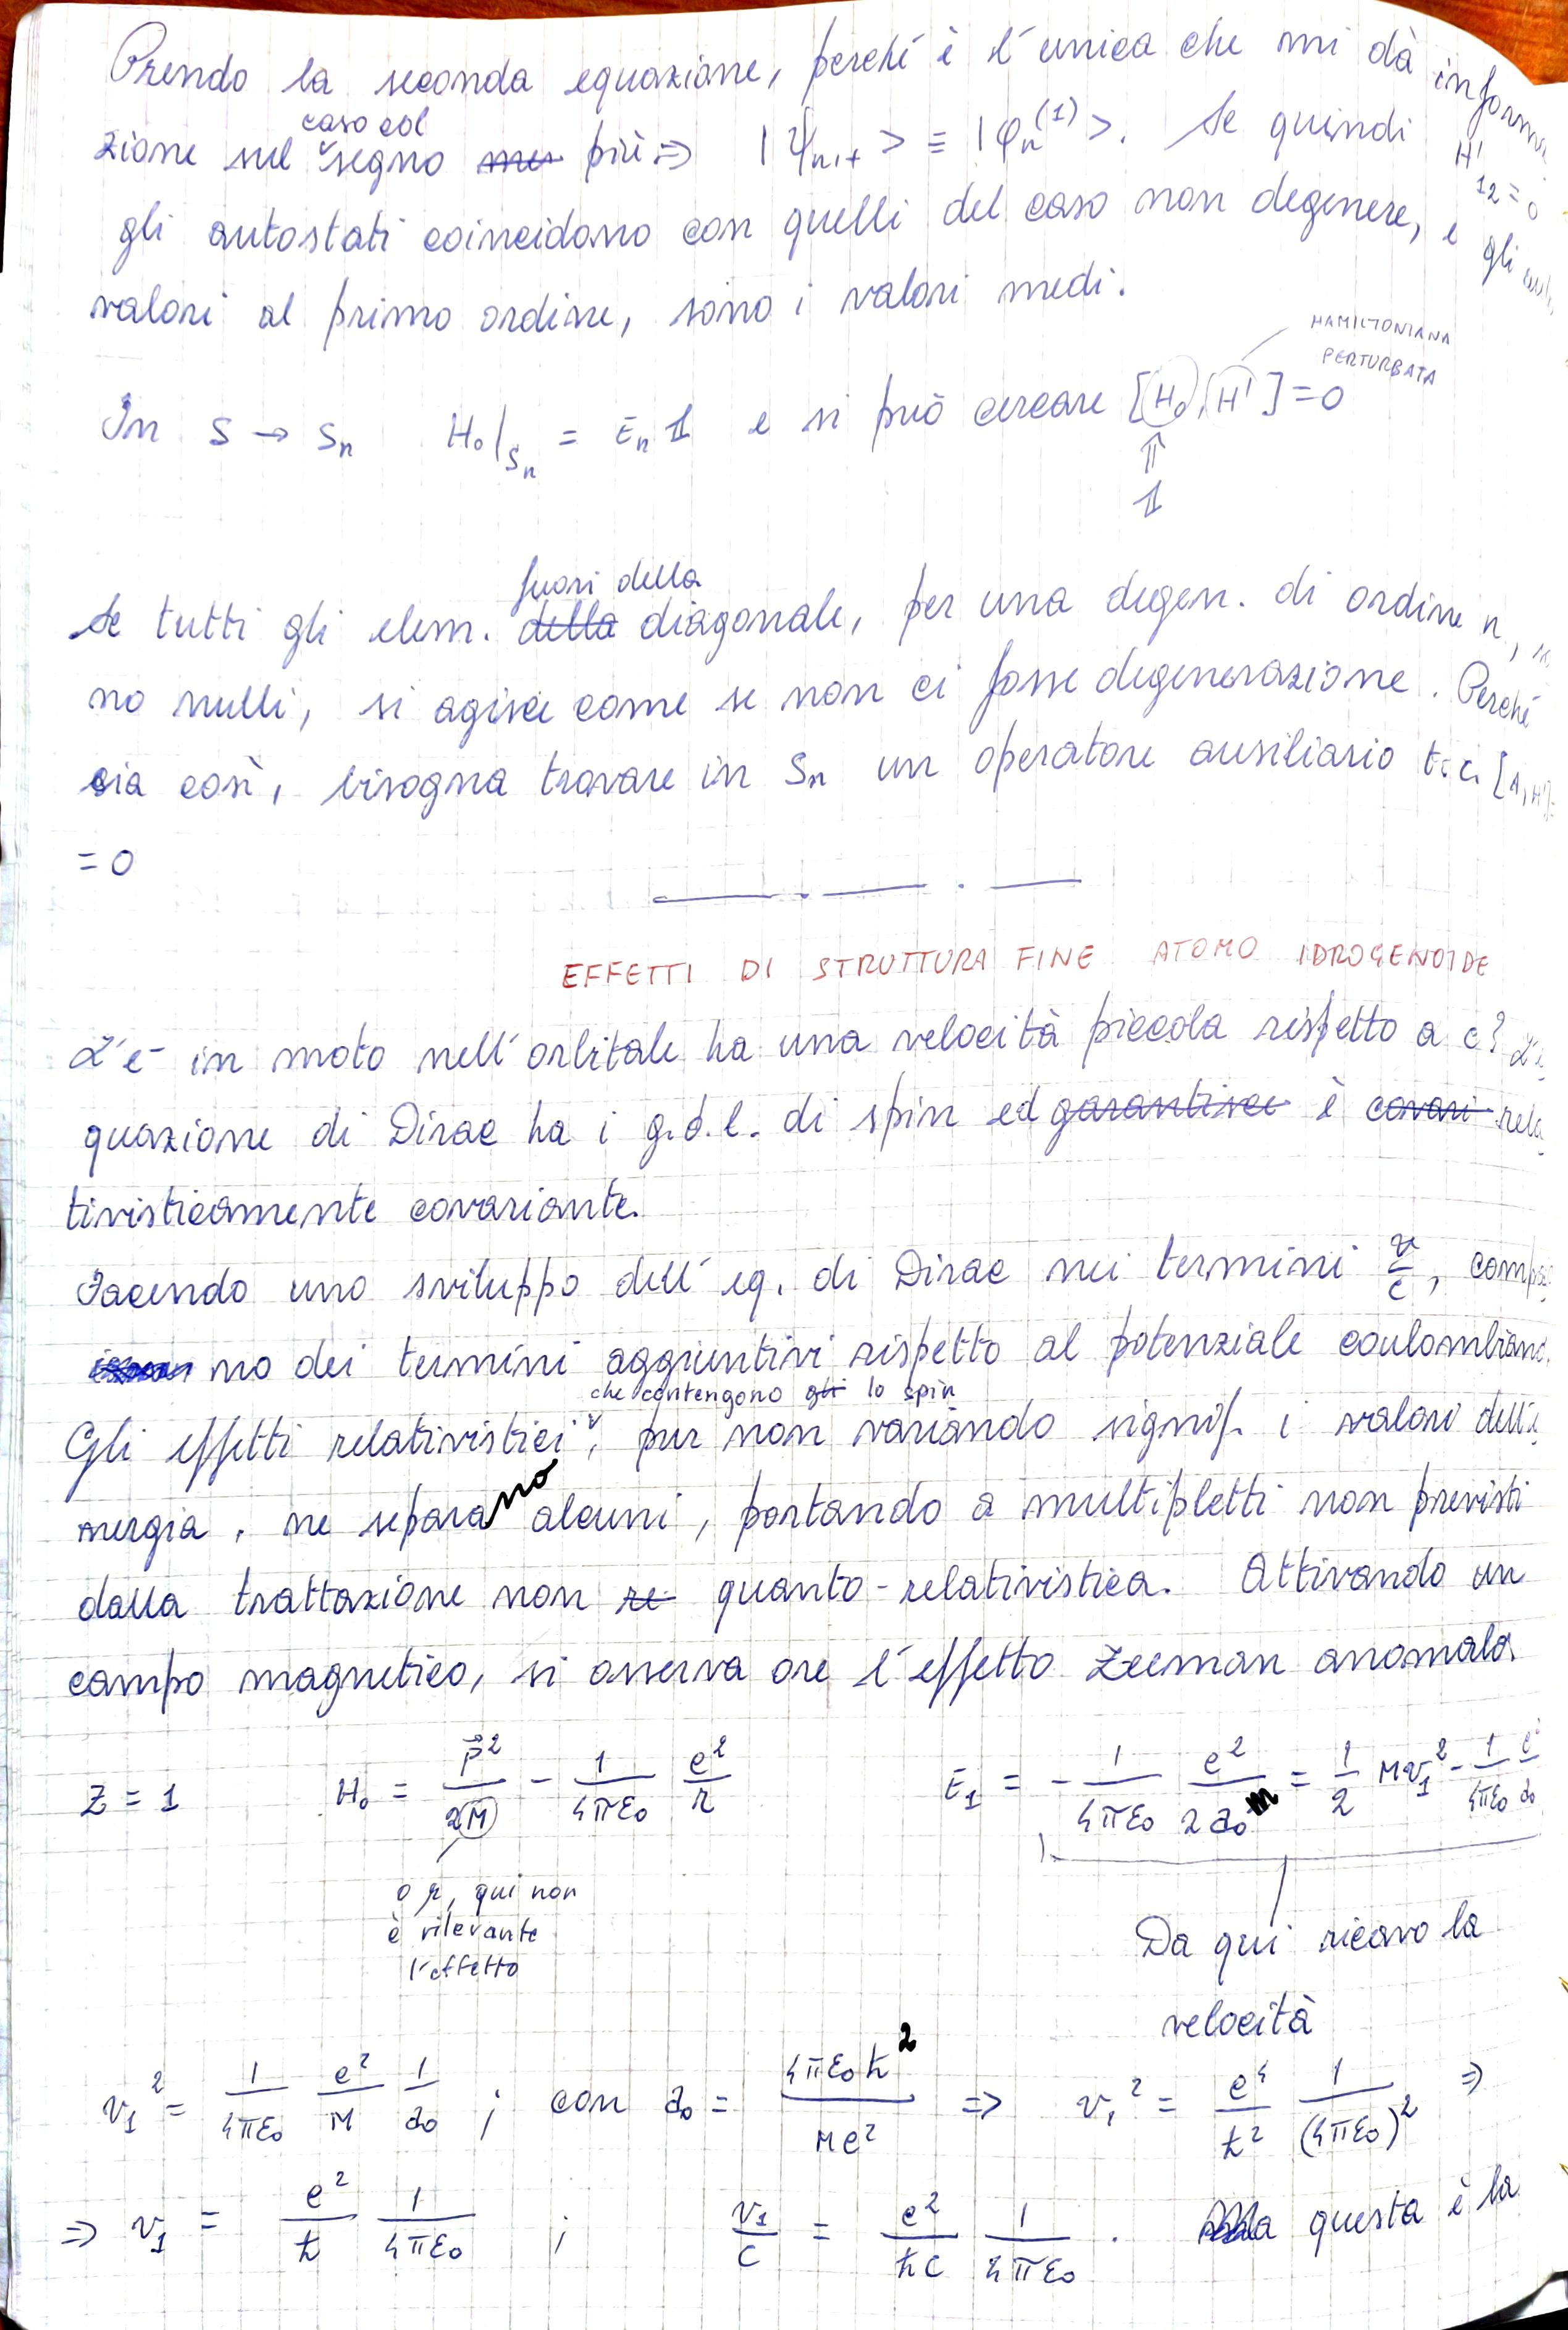 Prendo la seconda equazione, perché è l'unica che mi dà informa
zione sul caso col segno ~~me~~ più ⇒ |ψn,+> ≡ |φn^(1)>. Se quindi H'12=0
gli autostati coincidono con quelli del caso non degenere, e gli
valori al primo ordine, sono i valori medi.
HAMILTONIANA
PERTURBATA
In S → Sn H0|Sn = En 𝟙 e si può cercare [H0, H'] = 0
⇑
𝟙
Se tutti gli elem. ~~della~~ fuori della diagonale, per una degen. di ordine n,
no nulli, si agisce come se non ci fosse degenerazione. Perché
sia così, bisogna trovare in Sn un operatore ausiliario t.c. [A,H']=
= 0
EFFETTI DI STRUTTURA FINE ATOMO IDROGENOIDE
L'e⁻ in moto nell'orbitale ha una velocità piccola rispetto a c? L'e
quazione di Dirac ha i g.d.l. di spin ed ~~garantisce~~ è ~~covari~~ rela
tivisticamente covariante.
Facendo uno sviluppo dell'eq. di Dirac nei termini v/c, compaio
no dei termini aggiuntivi rispetto al potenziale coulombiano.
Gli effetti relativistici che contengono ~~gli~~ lo spin, pur non variando signif. i valori dell'e
nergia, ne separano alcuni, portando a multipletti non previsti
dalla trattazione non ~~re~~ quanto-relativistica. Attivando un
campo magnetico, si osserva ore l'effetto Zeeman anomalo.
Z = 1 H0 = p⃗²/2M - 1/4πε0 e²/r E1 = - 1/4πε0 e²/2a0 = 1/2 Mv1² - 1/4πε0 e²/a0
o μ, qui non
è rilevante
l'effetto
Da qui ricavo la
velocità
v1² = 1/4πε0 e²/M 1/a0 ; con a0 = 4πε0ħ²/Me² ⇒ v1² = e⁴/ħ² 1/(4πε0)² ⇒
⇒ v1 = e²/ħ 1/4πε0 ; v1/c = e²/ħc 1/4πε0 . questa è la